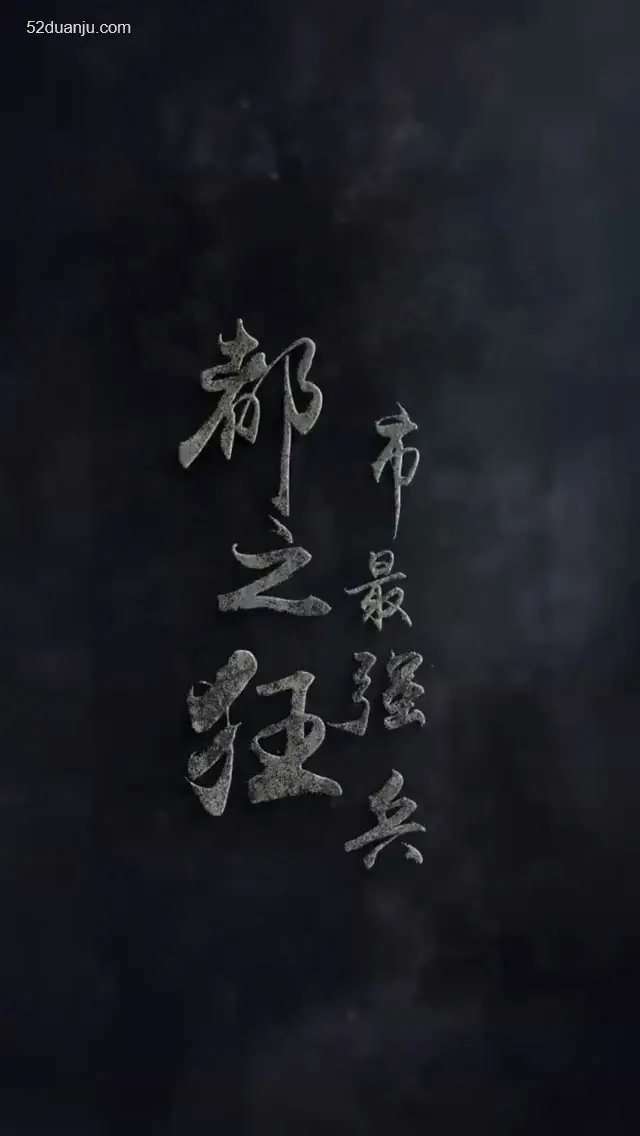 52duanju.com
都市
之最强
狂兵